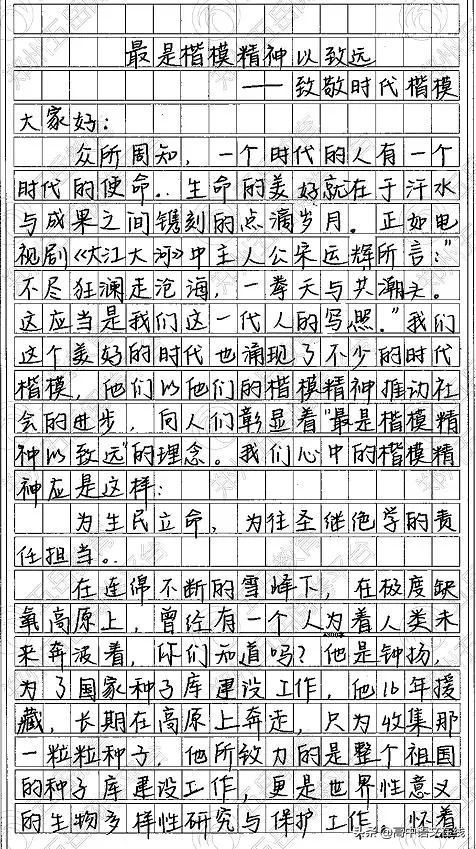 最是楷模精神以致远
——致敬时代楷模
大家好：
众所周知，一个时代的人有一个
时代的使命。生命的美好就在于汗水
与成果之间镌刻的点滴岁月。正如电
视剧《大江大河》中主人公宋运辉所言："
不尽狂澜走沧海，一拳天与共潮头。
这应当是我们这一代人的写照。"我们
这个美好的时代也涌现了不少的时代
楷模，他们以他们的楷模精神推动社
会的进步，向人们彰显着"最是楷模精
神以致远"的理念。我们心中的楷模精
神应是这样：
为生民立命，为往圣继绝学的责
任担当。
在连绵不断的雪峰下，在极度缺
氧高原上，曾经有一个人为着人类未
来奔波着，你们知道吗？他是钟扬，
为了国家种子库建设工作，他16年援
藏，长期在高原上奔走，只为收集那
一粒粒种子，他所致力的是整个祖国
的种子库建设工作，更是世界性意义
的生物多样性研究与保护工作，怀着
头条@高中语文在线